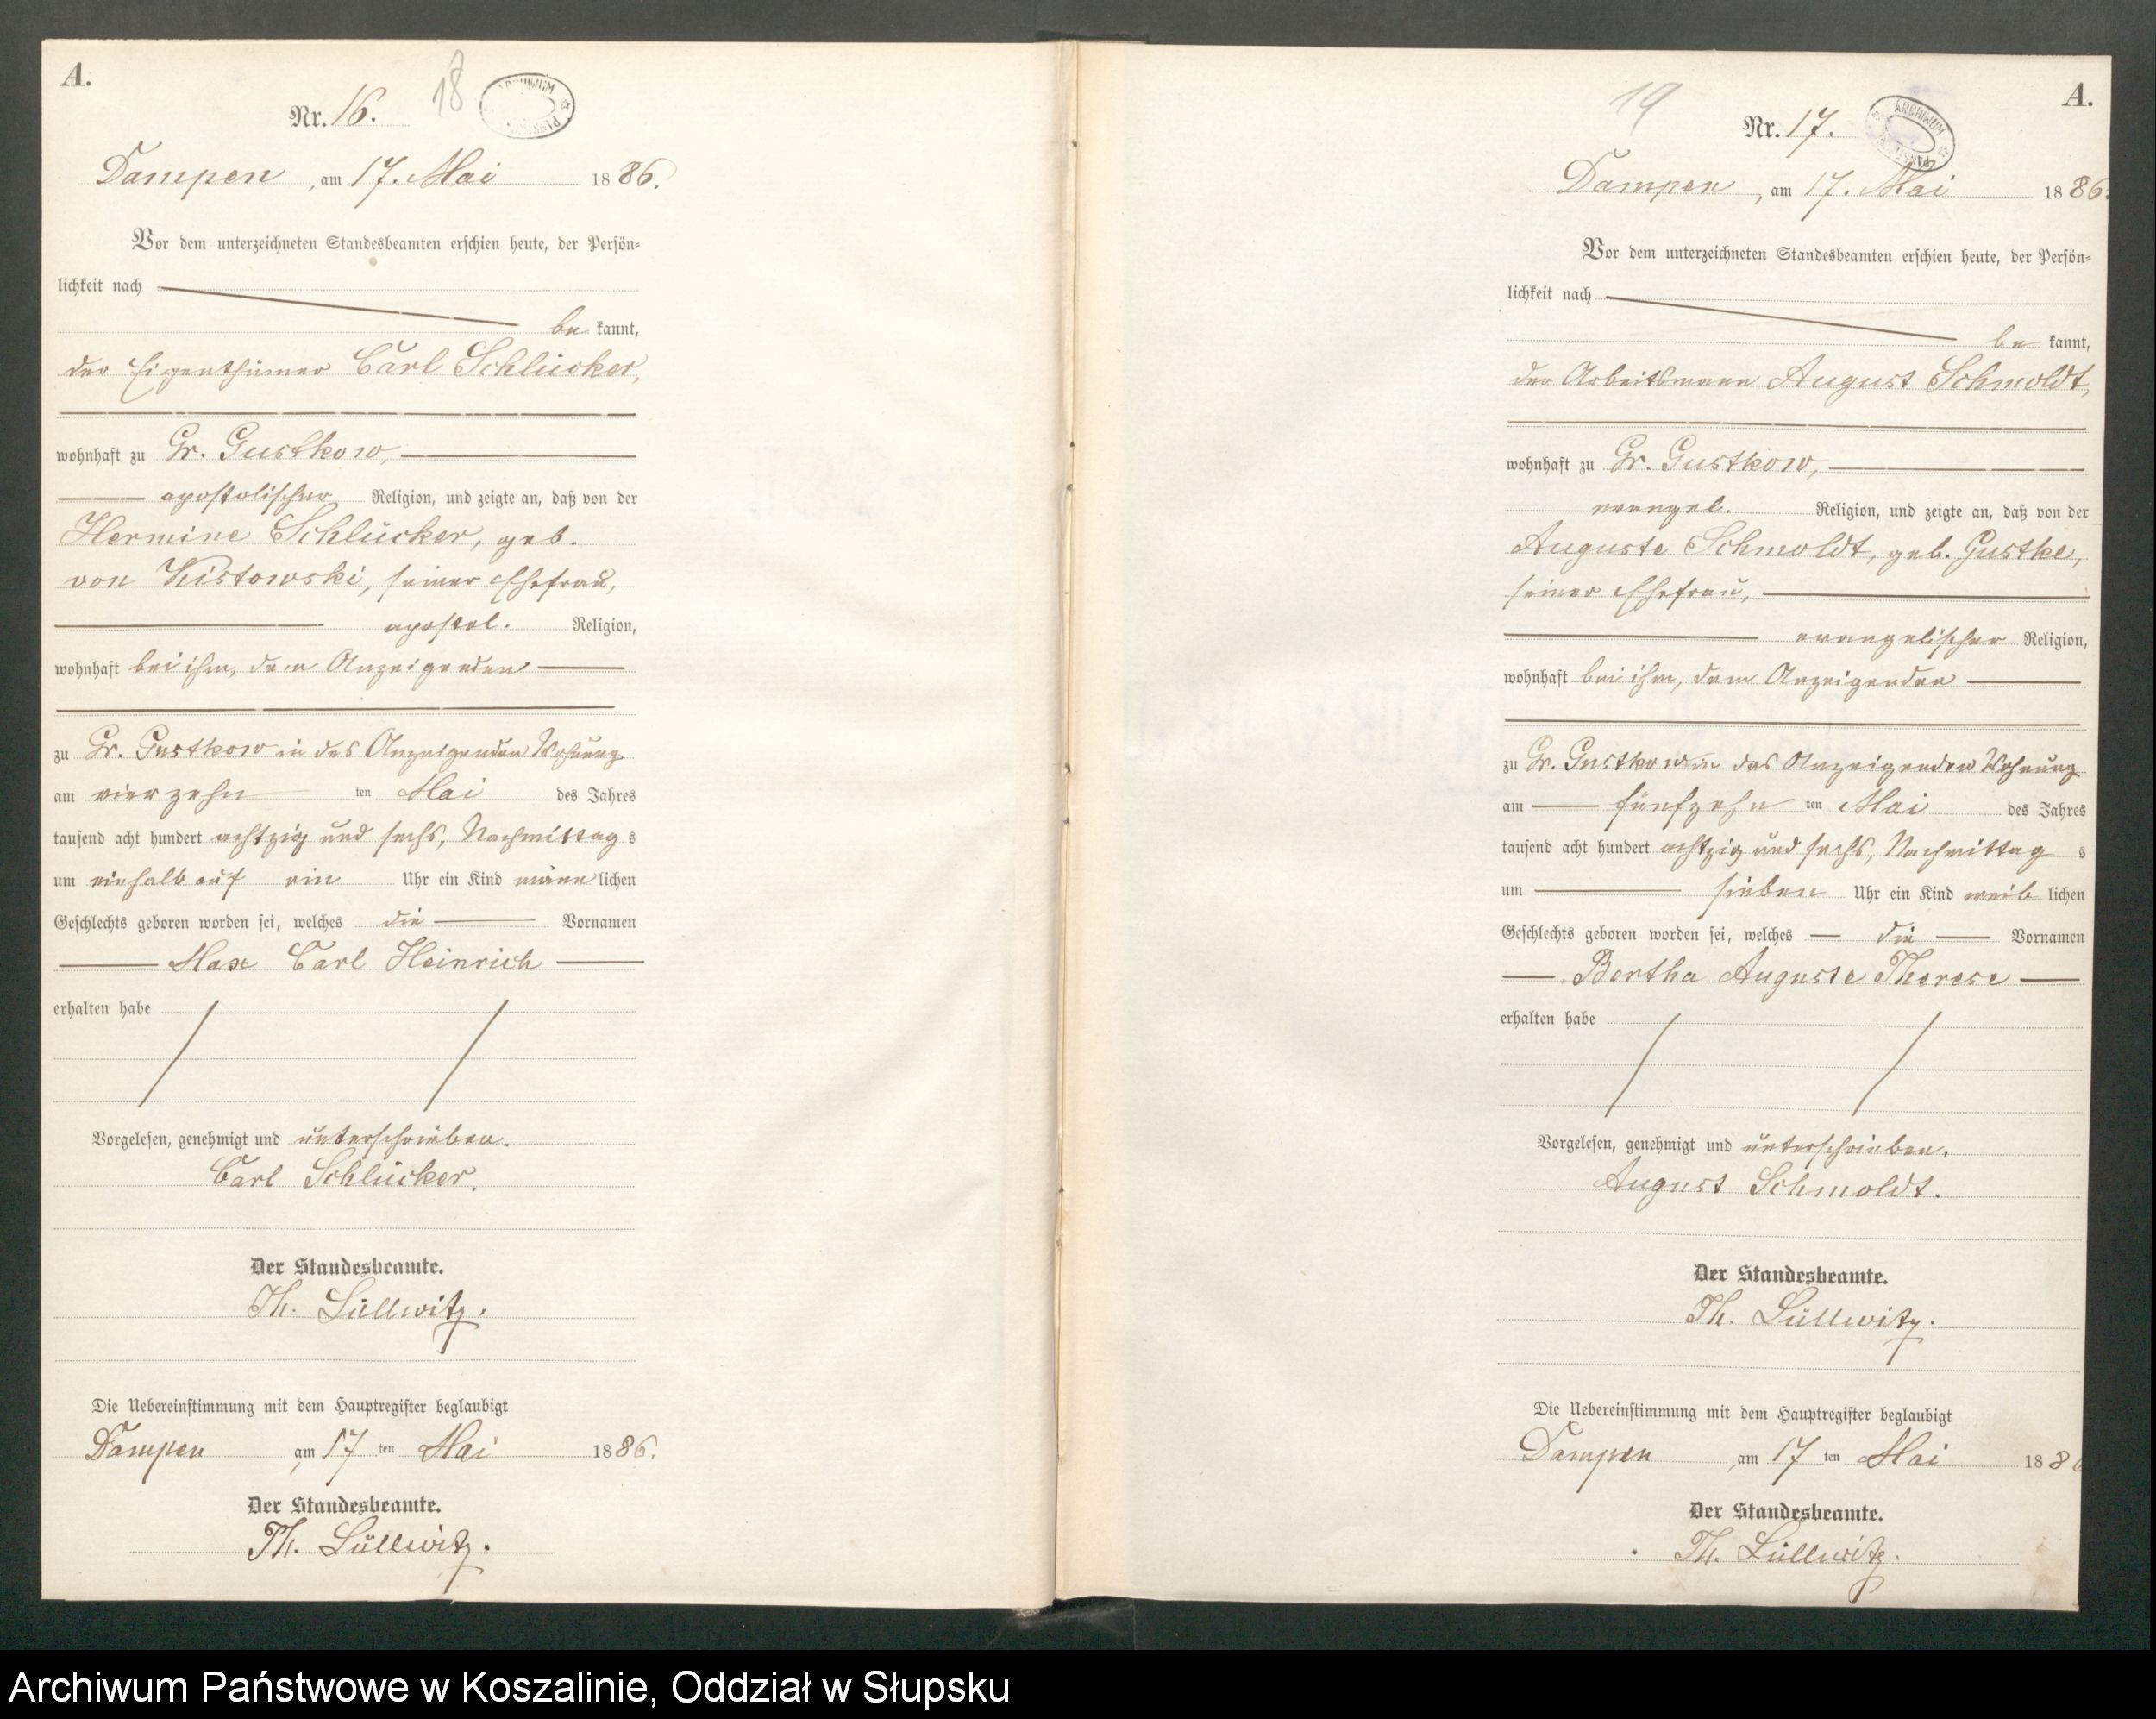 A.
Nr. 16.
18
ARCHIWUM
Dampen, am 17. Mai 1886.
Vor dem unterzeichneten Standesbeamten erschien heute, der Persön-
lichkeit nach
be kannt,
der Eigenthümer Carl Schlücker,
wohnhaft zu Gr. Gustkow,
apostolischer Religion, und zeigte an, daß von der
Hermine Schlücker, geb.
von Kistowski, seiner Ehefrau,
apostol. Religion,
wohnhaft bei ihm, dem Anzeigenden
zu Gr. Gustkow in des Anzeigenden Wohnung
am vierzehn ten Mai des Jahres
tausend acht hundert achtzig und sechs, Nachmittag s
um einhalb auf ein Uhr ein Kind männ lichen
Geschlechts geboren worden sei, welches die Vornamen
Max Carl Heinrich
erhalten habe
Vorgelesen, genehmigt und unterschrieben.
Carl Schlücker.
Der Standesbeamte.
Th. Lüllwitz.
Die Uebereinstimmung mit dem Hauptregister beglaubigt
Dampen, am 17 ten Mai 1886.
Der Standesbeamte.
Th. Lüllwitz.
A.
19
Nr. 17.
ARCHIWUM
Dampen, am 17. Mai 1886.
Vor dem unterzeichneten Standesbeamten erschien heute, der Persön-
lichkeit nach
be kannt,
der Arbeitsmann August Schmoldt,
wohnhaft zu Gr. Gustkow,
evangel. Religion, und zeigte an, daß von der
Auguste Schmoldt, geb. Gustke,
seiner Ehefrau,
evangelischer Religion,
wohnhaft bei ihm, dem Anzeigenden
zu Gr. Gustkow in des Anzeigenden Wohnung
am fünfzehn ten Mai des Jahres
tausend acht hundert achtzig und sechs, Nachmittag s
um sieben Uhr ein Kind weib lichen
Geschlechts geboren worden sei, welches die Vornamen
Bertha Auguste Therese
erhalten habe
Vorgelesen, genehmigt und unterschrieben.
August Schmoldt.
Der Standesbeamte.
Th. Lüllwitz.
Die Uebereinstimmung mit dem Hauptregister beglaubigt
Dampen, am 17 ten Mai 1886
Der Standesbeamte.
Th. Lüllwitz.
Archiwum Państwowe w Koszalinie, Oddział w Słupsku